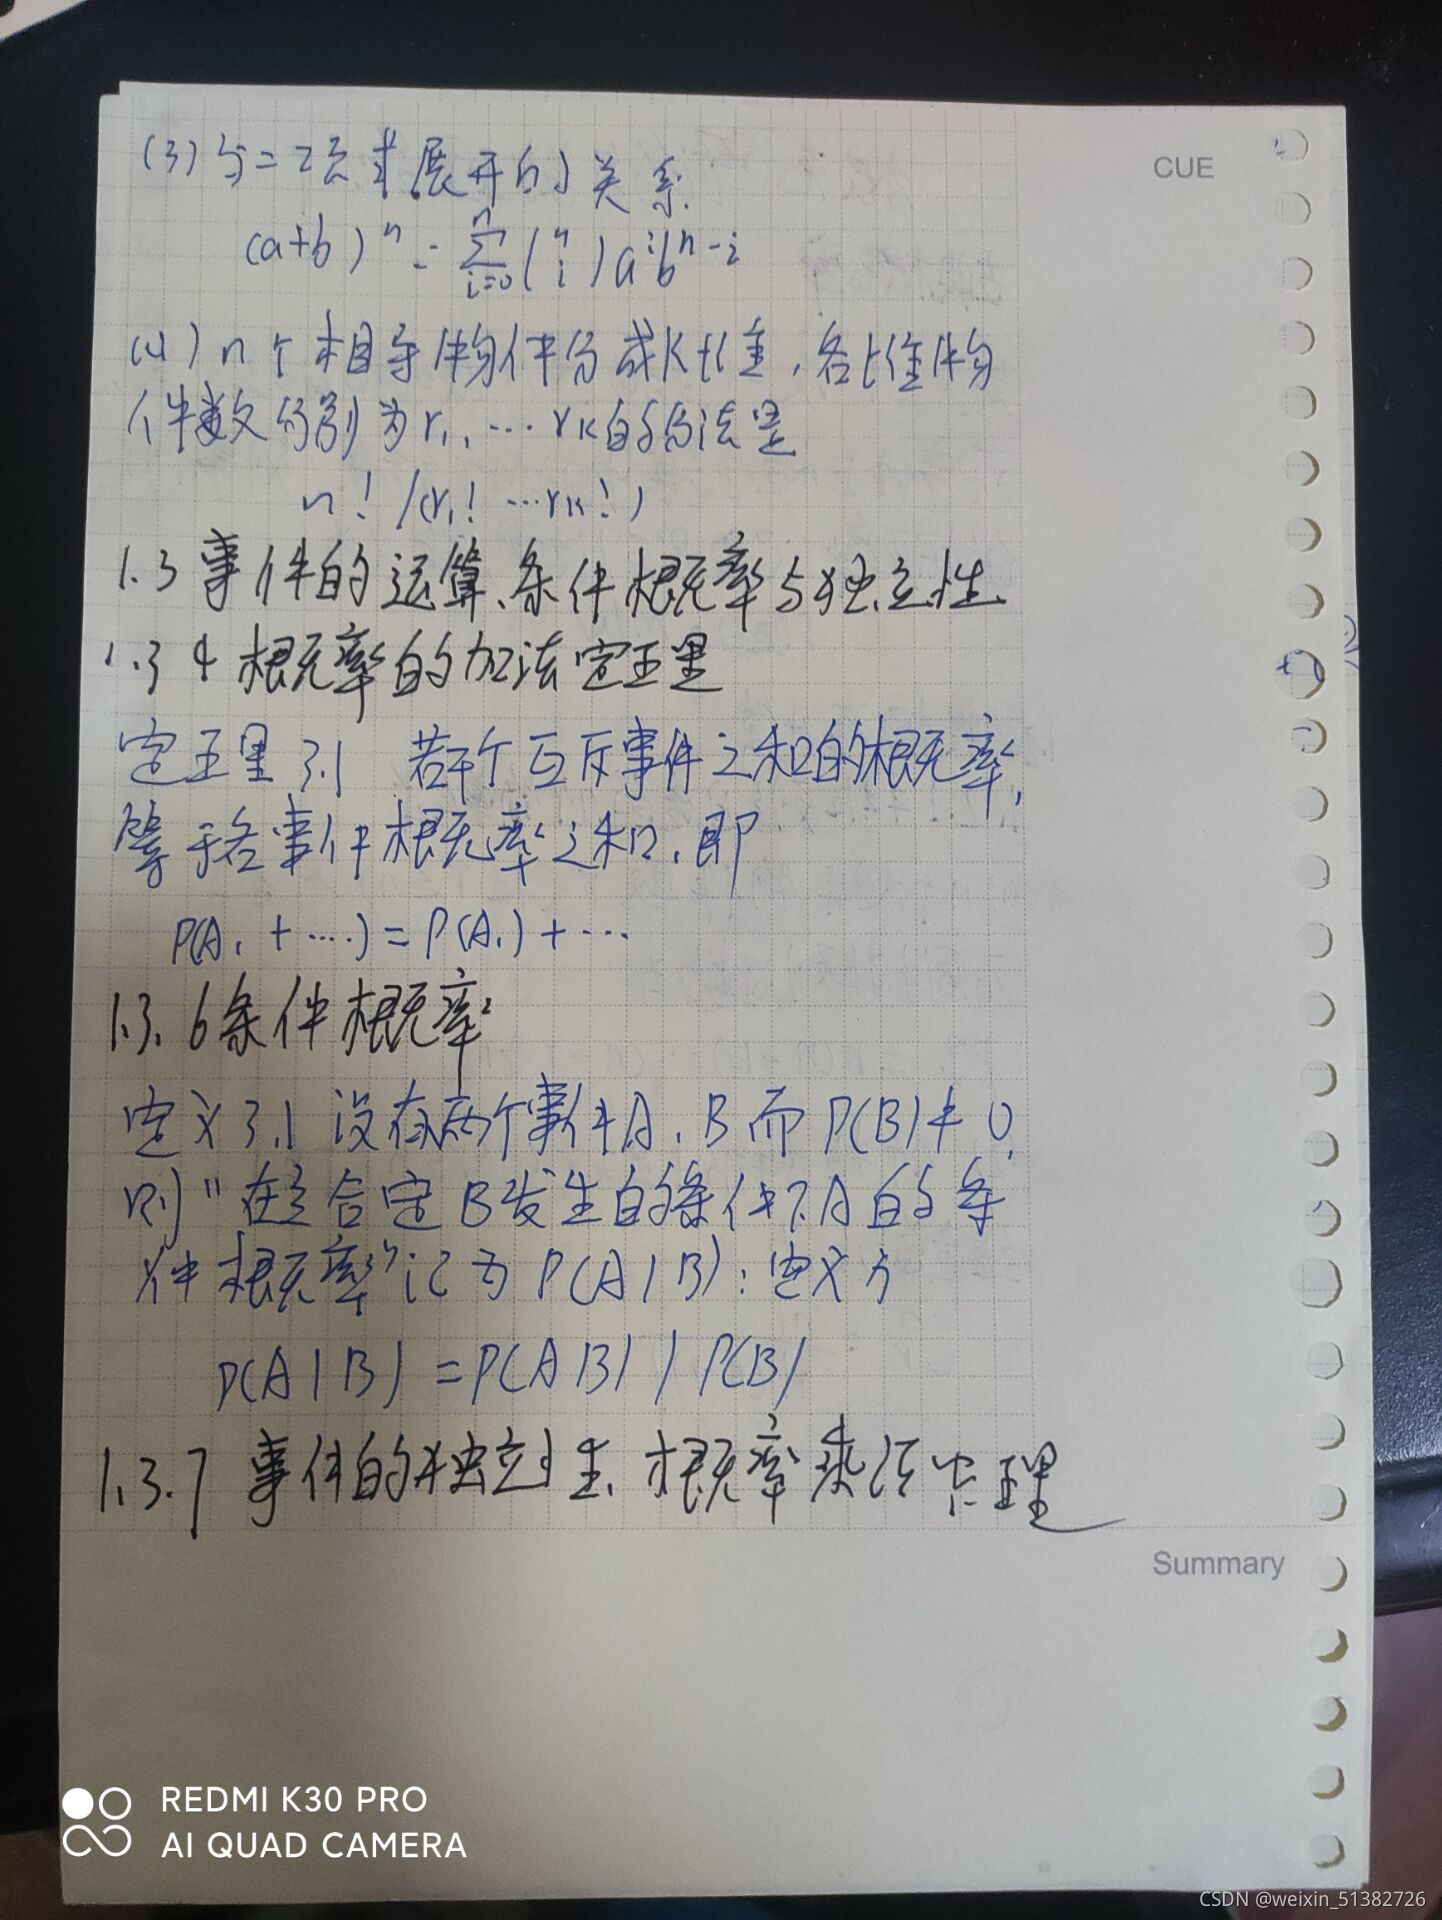 (3)与二项式展开的关系
(a+b)ⁿ = Σⁿᵢ₌₀ (n i) aⁱbⁿ⁻ⁱ
(4) n个相导物件分成K堆,各堆物
件数分别为r₁, …rₖ的分法是
n! /(r₁! …rₖ!)
1.3 事件的运算、条件概率与独立性
1.3 4 概率的加法定理
定理 3.1 若干个互斥事件之和的概率,
等于各事件概率之和,即
P(A₁+…)=P(A₁)+…
1.3.6 条件概率
定义3.1 设有两个事件A,B而P(B)≠0,
则"在给定B发生的条件下A的条
件概率"记为P(A|B):定义为
P(A|B)=P(AB)/P(B)
1.3.7 事件的独立性,概率乘法定理
CUE
Summary
REDMI K30 PRO
AI QUAD CAMERA
CSDN @weixin_51382726